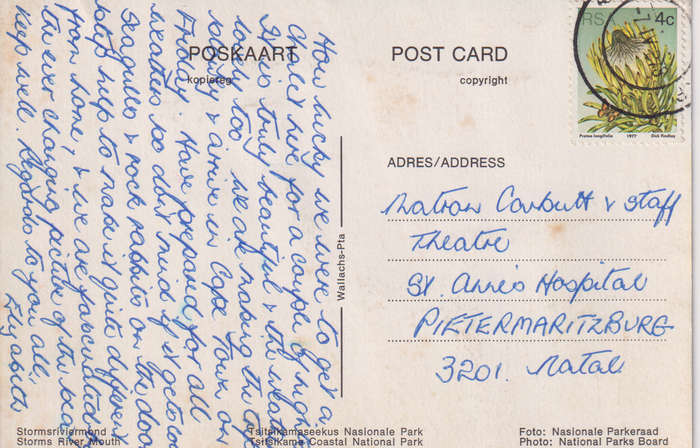 POSKAART
kopiereg
POST CARD
copyright
RSA 4c
Protea longifolia 1977 Dick Findlay
How lucky we were to get a
chalet here for a couple of nights
It is truly beautiful & the weather
lovely too. We are making the
& arrive in Cape Town on
Friday. Have prepared for all
weathers so don't mind if it gets cold
Seagulls & rock rabbits on the door
step help to make it quite different
from home, & we are fascinated
the ever changing picture of the sea
Keep well. Regards to you all.
Elizabeth
Wallachs-Pta
ADRES/ADDRESS
Matron Corbutt & staff
Theatre
St. Anne's Hospital
PIETERMARITZBURG
3201. Natal
Stormsriviermond
Storms River Mouth
Tsitsikamaseekus Nasionale Park
Tsitsikama Coastal National Park
Foto: Nasionale Parkeraad
Photo: National Parks Board